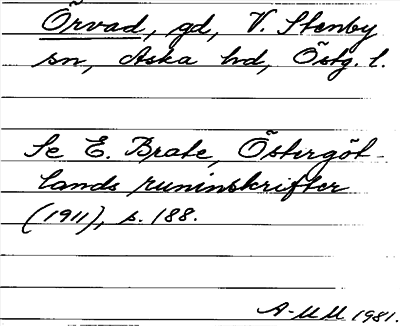 Örvad, gd, V. Stenby
sn, Aska hd, Östg. l.
Se E. Brate, Östergöt-
lands runinskrifter
(1911), s. 188.
A-MM 1981.